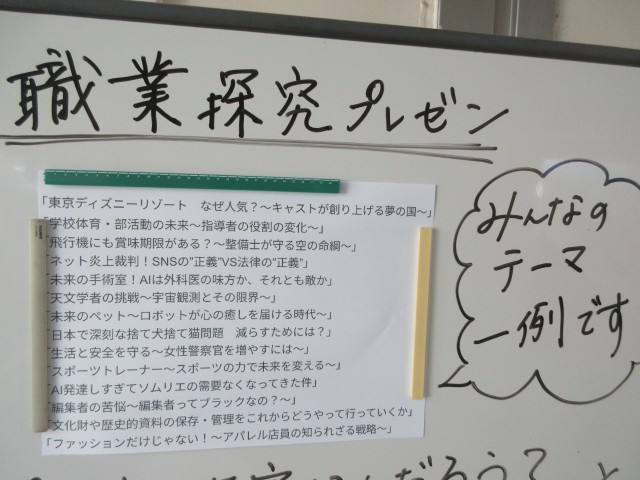 職業探究プレゼン
「東京ディズニーリゾート　なぜ人気？～キャストが創り上げる夢の国～」
「学校体育・部活動の未来～指導者の役割の変化～」
「飛行機にも賞味期限がある？～整備士が守る空の命綱～」
「ネット炎上裁判！SNSの”正義”VS法律の”正義”」
「未来の手術室！AIは外科医の味方か、それとも敵か」
「天文学者の挑戦～宇宙観測とその限界～」
「未来のペット～ロボットが心の癒しを届ける時代～」
「日本で深刻な捨て犬捨て猫問題　減らすためには？」
「生活と安全を守る～女性警察官を増やすには～」
「スポーツトレーナー～スポーツの力で未来を変える～」
「AI発達しすぎてソムリエの需要なくなってきた件」
「編集者の苦悩～編集者ってブラックなの？～」
「文化財や歴史的資料の保存・管理をこれからどうやって行っていくか」
「ファッションだけじゃない！～アパレル店員の知られざる戦略～」
みんなの
テーマ
一例です